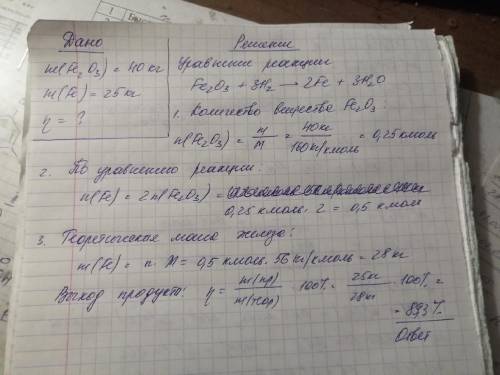 Дано
m(Fe₂O₃) = 40 кг
m(Fe) = 25 кг
η = ?
Решение
Уравнение реакции
Fe₂O₃ + 3H₂ → 2Fe + 3H₂O
1. Количество вещества Fe₂O₃:
n(Fe₂O₃) = m/M = 40кг/160кг/кмоль = 0,25 кмоль
2. По уравнению реакции:
n(Fe) = 2n(Fe₂O₃) =
0,25 кмоль · 2 = 0,5 кмоль
3. Теоретическая масса железа:
m(Fe) = n · M = 0,5 кмоль · 56 кг/кмоль = 28 кг
Выход продукта: η = m(пр)/m(теор) · 100% = 25кг/28кг · 100% =
= 89,3%
Ответ